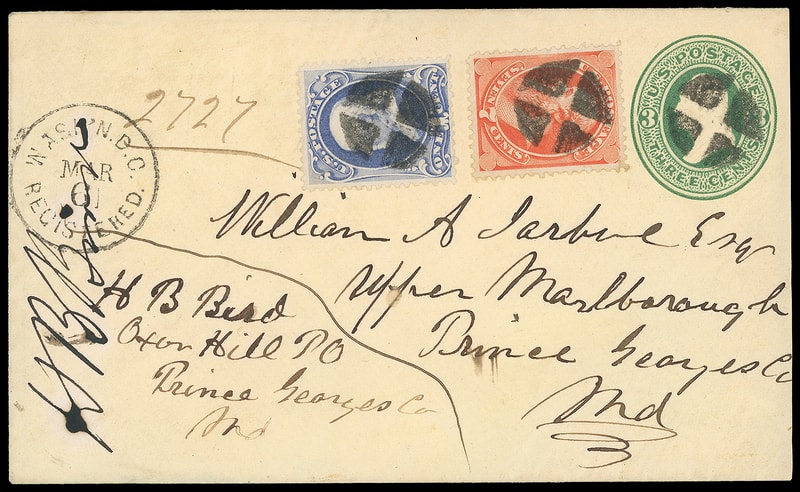 2727
U.S. POSTAGE
ONE CENT
SEVEN CENTS
U.S. POSTAGE
3
THREE CENTS
WASH'N. D.C.
MAR
REGISTERED.
William A Jarboe Esq
Upper Marlborough
Prince Georges Co
Md
H B Bird
Oxon Hill PO
Prince Georges Co
Md